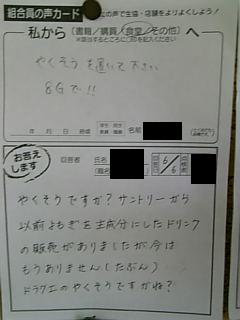 組合員の声カード
の声で生協・店舗をよりよくしよう!
私から(書籍/購買/食堂/その他)へ
※該当するところに○印を記入ください
やくそうを置いて下さい
8Gで!!
年 月 日
名前
お答えします
回答者
氏名
回答日
6/6
やくそうですか?サントリーから
以前よもぎを主成分にしたドリンク
の販売がありましたが今は
もうありません(たぶん)
ドラクエのやくそうですかね?